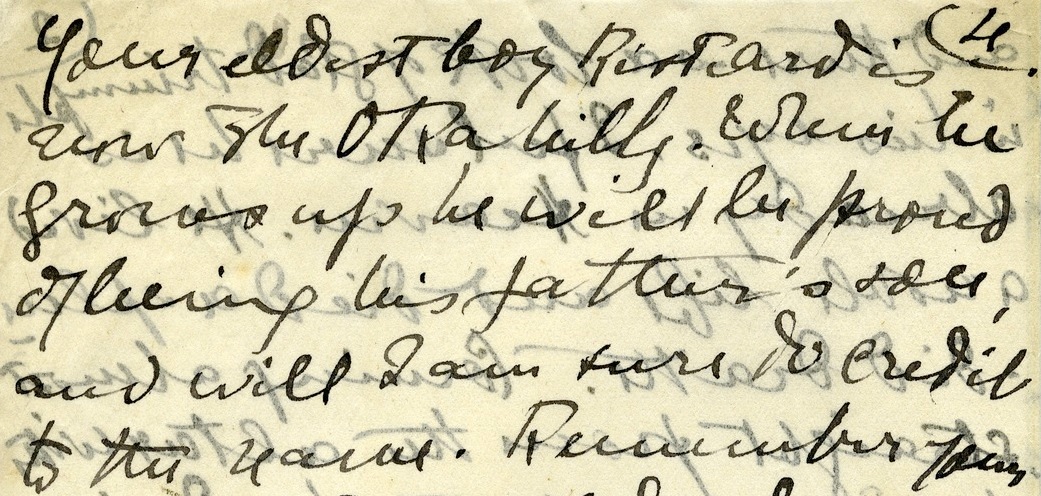 (4.
Your eldest boy Risteard is
now The O Rahilly. When he
grows up he will be proud
of being his father's son,
and will I am sure do credit
to the name. Remember your